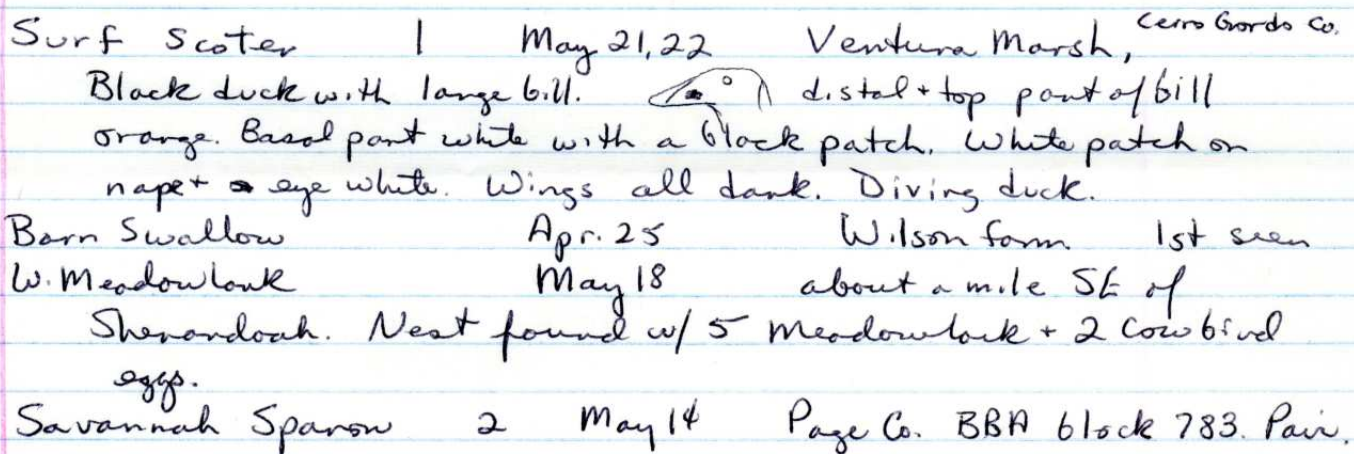 Surf Scoter 1 May 21,22 Ventura Marsh, Cerro Gordo Co.
Black duck with large bill. distal + top part of bill
orange. Basal part white with a black patch. White patch on
nape + eye white. Wings all dark. Diving duck.
Barn Swallow Apr. 25 Wilson farm 1st seen
W. Meadowlark May 18 about a mile SE of
Shenandoah. Nest found w/ 5 meadowlark + 2 Cowbird
eggs.
Savannah Sparow 2 May 14 Page Co. BBA block 783. Pair.